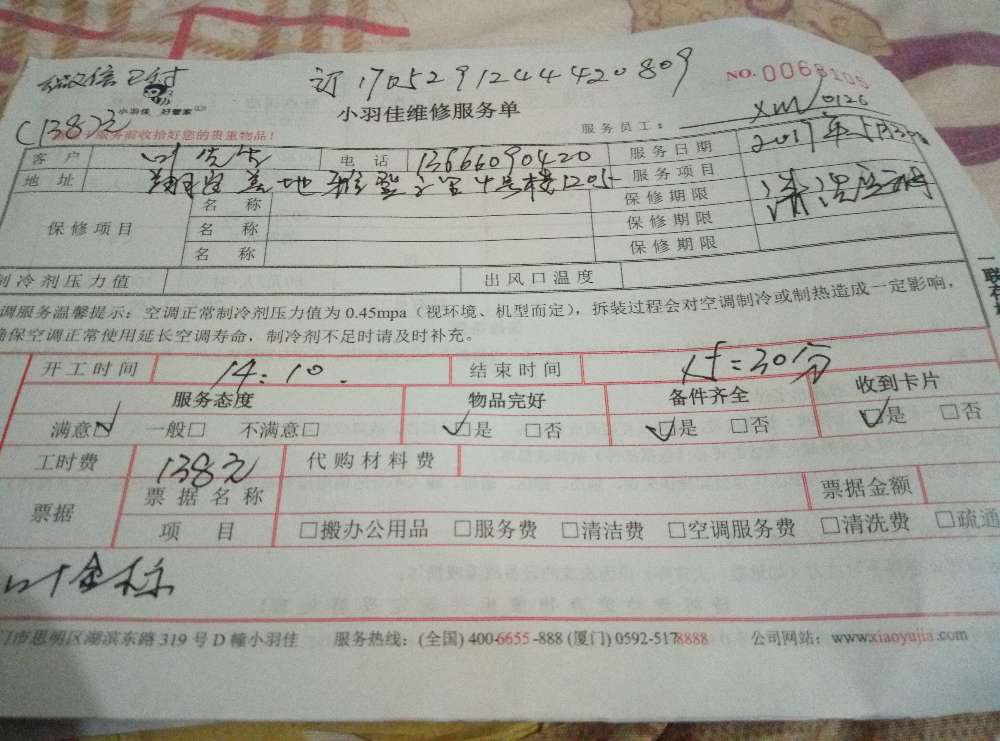 微信已付
订 170529124442 0809
NO.0068105
小羽佳 好管家
小羽佳维修服务单
(138元)
服务前收拾好您的贵重物品!
服务员工: XM/0126
客 户 叶先生 电 话 13666090420 服务日期 2017年
地 址 4号楼1205 服务项目
保修项目
名 称 保修期限
名 称 保修期限
名 称 保修期限
制冷剂压力值 出风口温度
调服务温馨提示:空调正常制冷剂压力值为 0.45mpa(视环境、机型而定),拆装过程会对空调制冷或制热造成一定影响,
确保空调正常使用延长空调寿命,制冷剂不足时请及时补充。
开工时间 14:10. 结束时间 15=30分
服务态度 物品完好 备件齐全 收到卡片
满意□ 一般□ 不满意□ □是 □否 □是 □否 □是 □否
工时费 138元 代购材料费
票据 票据名称 票据金额
项 目 □搬办公用品 □服务费 □清洁费 □空调服务费 □清洗费 □疏通
门市思明区湖滨东路 319 号 D 幢小羽佳 服务热线:(全国) 400-6655-888 (厦门) 0592-5178888 公司网站:www.xiaoyujia.com